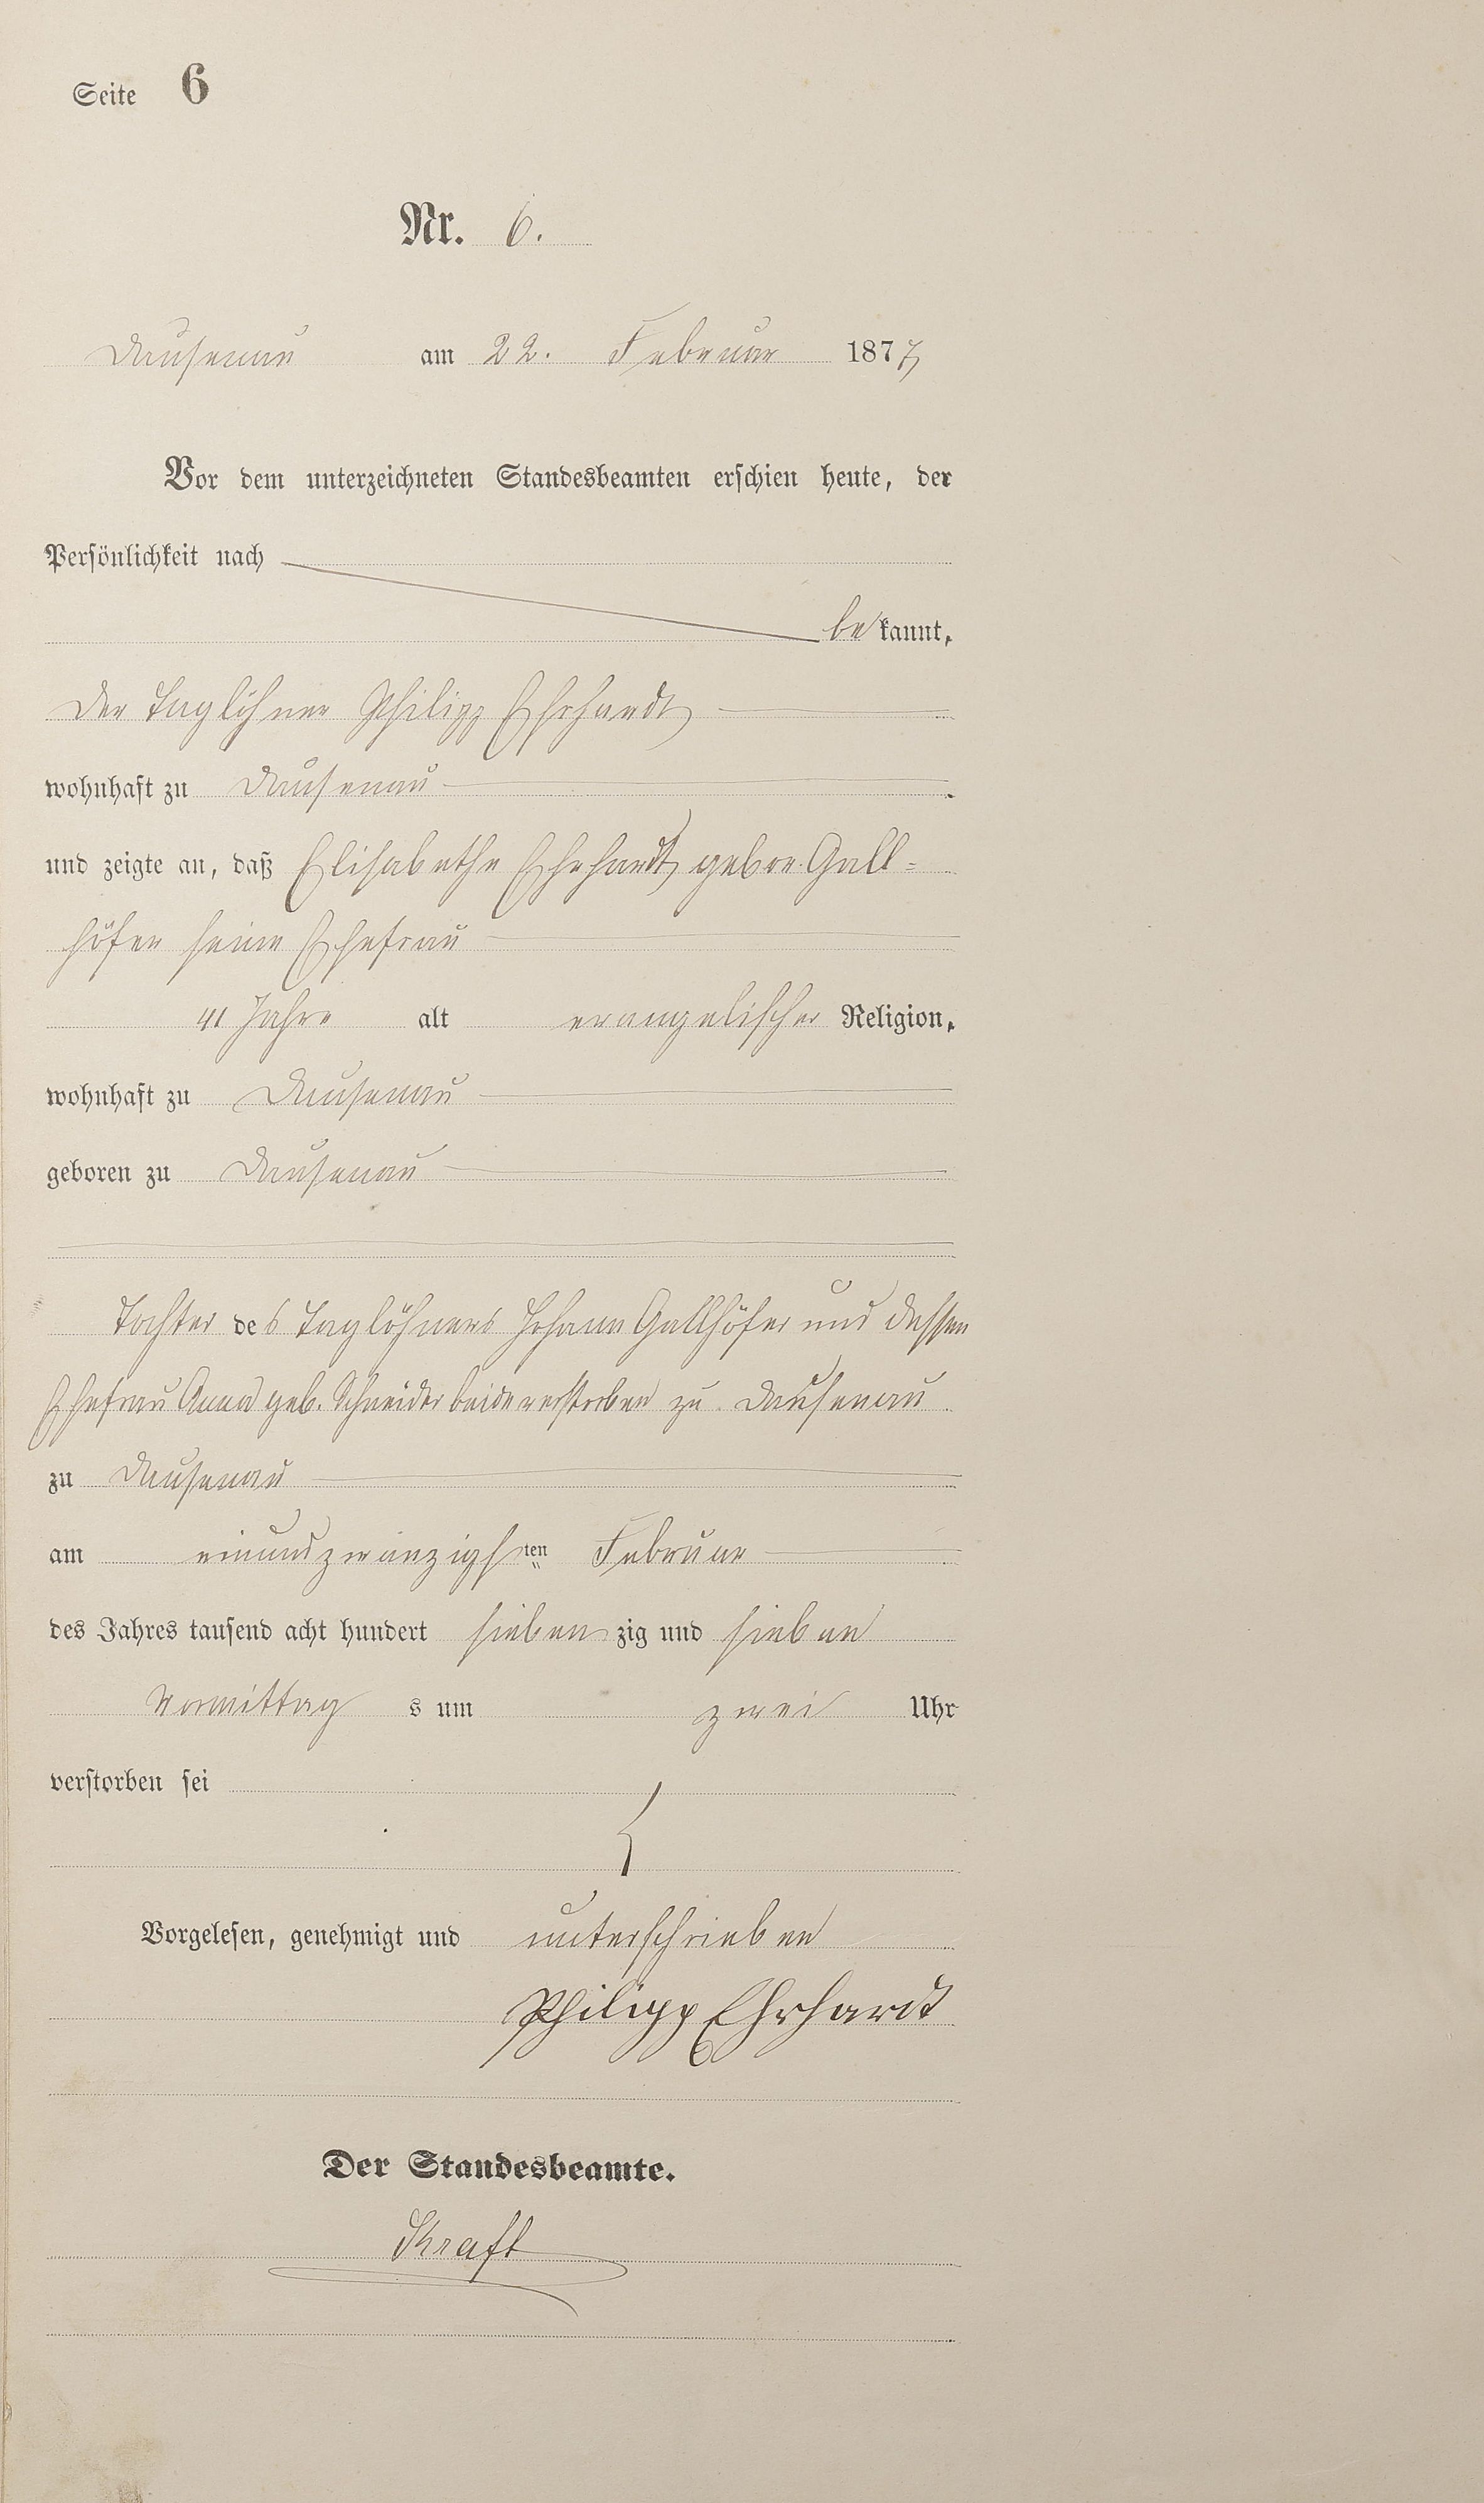 Seite 6
Nr. 6.
Dausenau am 22. Februar 1877
Vor dem unterzeichneten Standesbeamten erschien heute, der
Persönlichkeit nach
bekannt,
der Taglöhner Philipp Ehrhardt
wohnhaft zu Dausenau
und zeigte an, daß Elisabethe Ehrhardt gebor. Gall-
höfer seine Ehefrau
41 Jahre alt evangelischer Religion,
wohnhaft zu Dausenau
geboren zu Dausenau
Tochter des Taglöhners Johann Gallhöfer und dessen
Ehefrau Anna geb. Schneider beide verstorben zu Dausenau.
zu Dausenau
am einundzwanzigsten Februar
des Jahres tausend acht hundert siebenzig und sieben
Vormittags um zwei Uhr
verstorben sei
Vorgelesen, genehmigt und unterschrieben
Philipp Ehrhardt
Der Standesbeamte.
Kraft